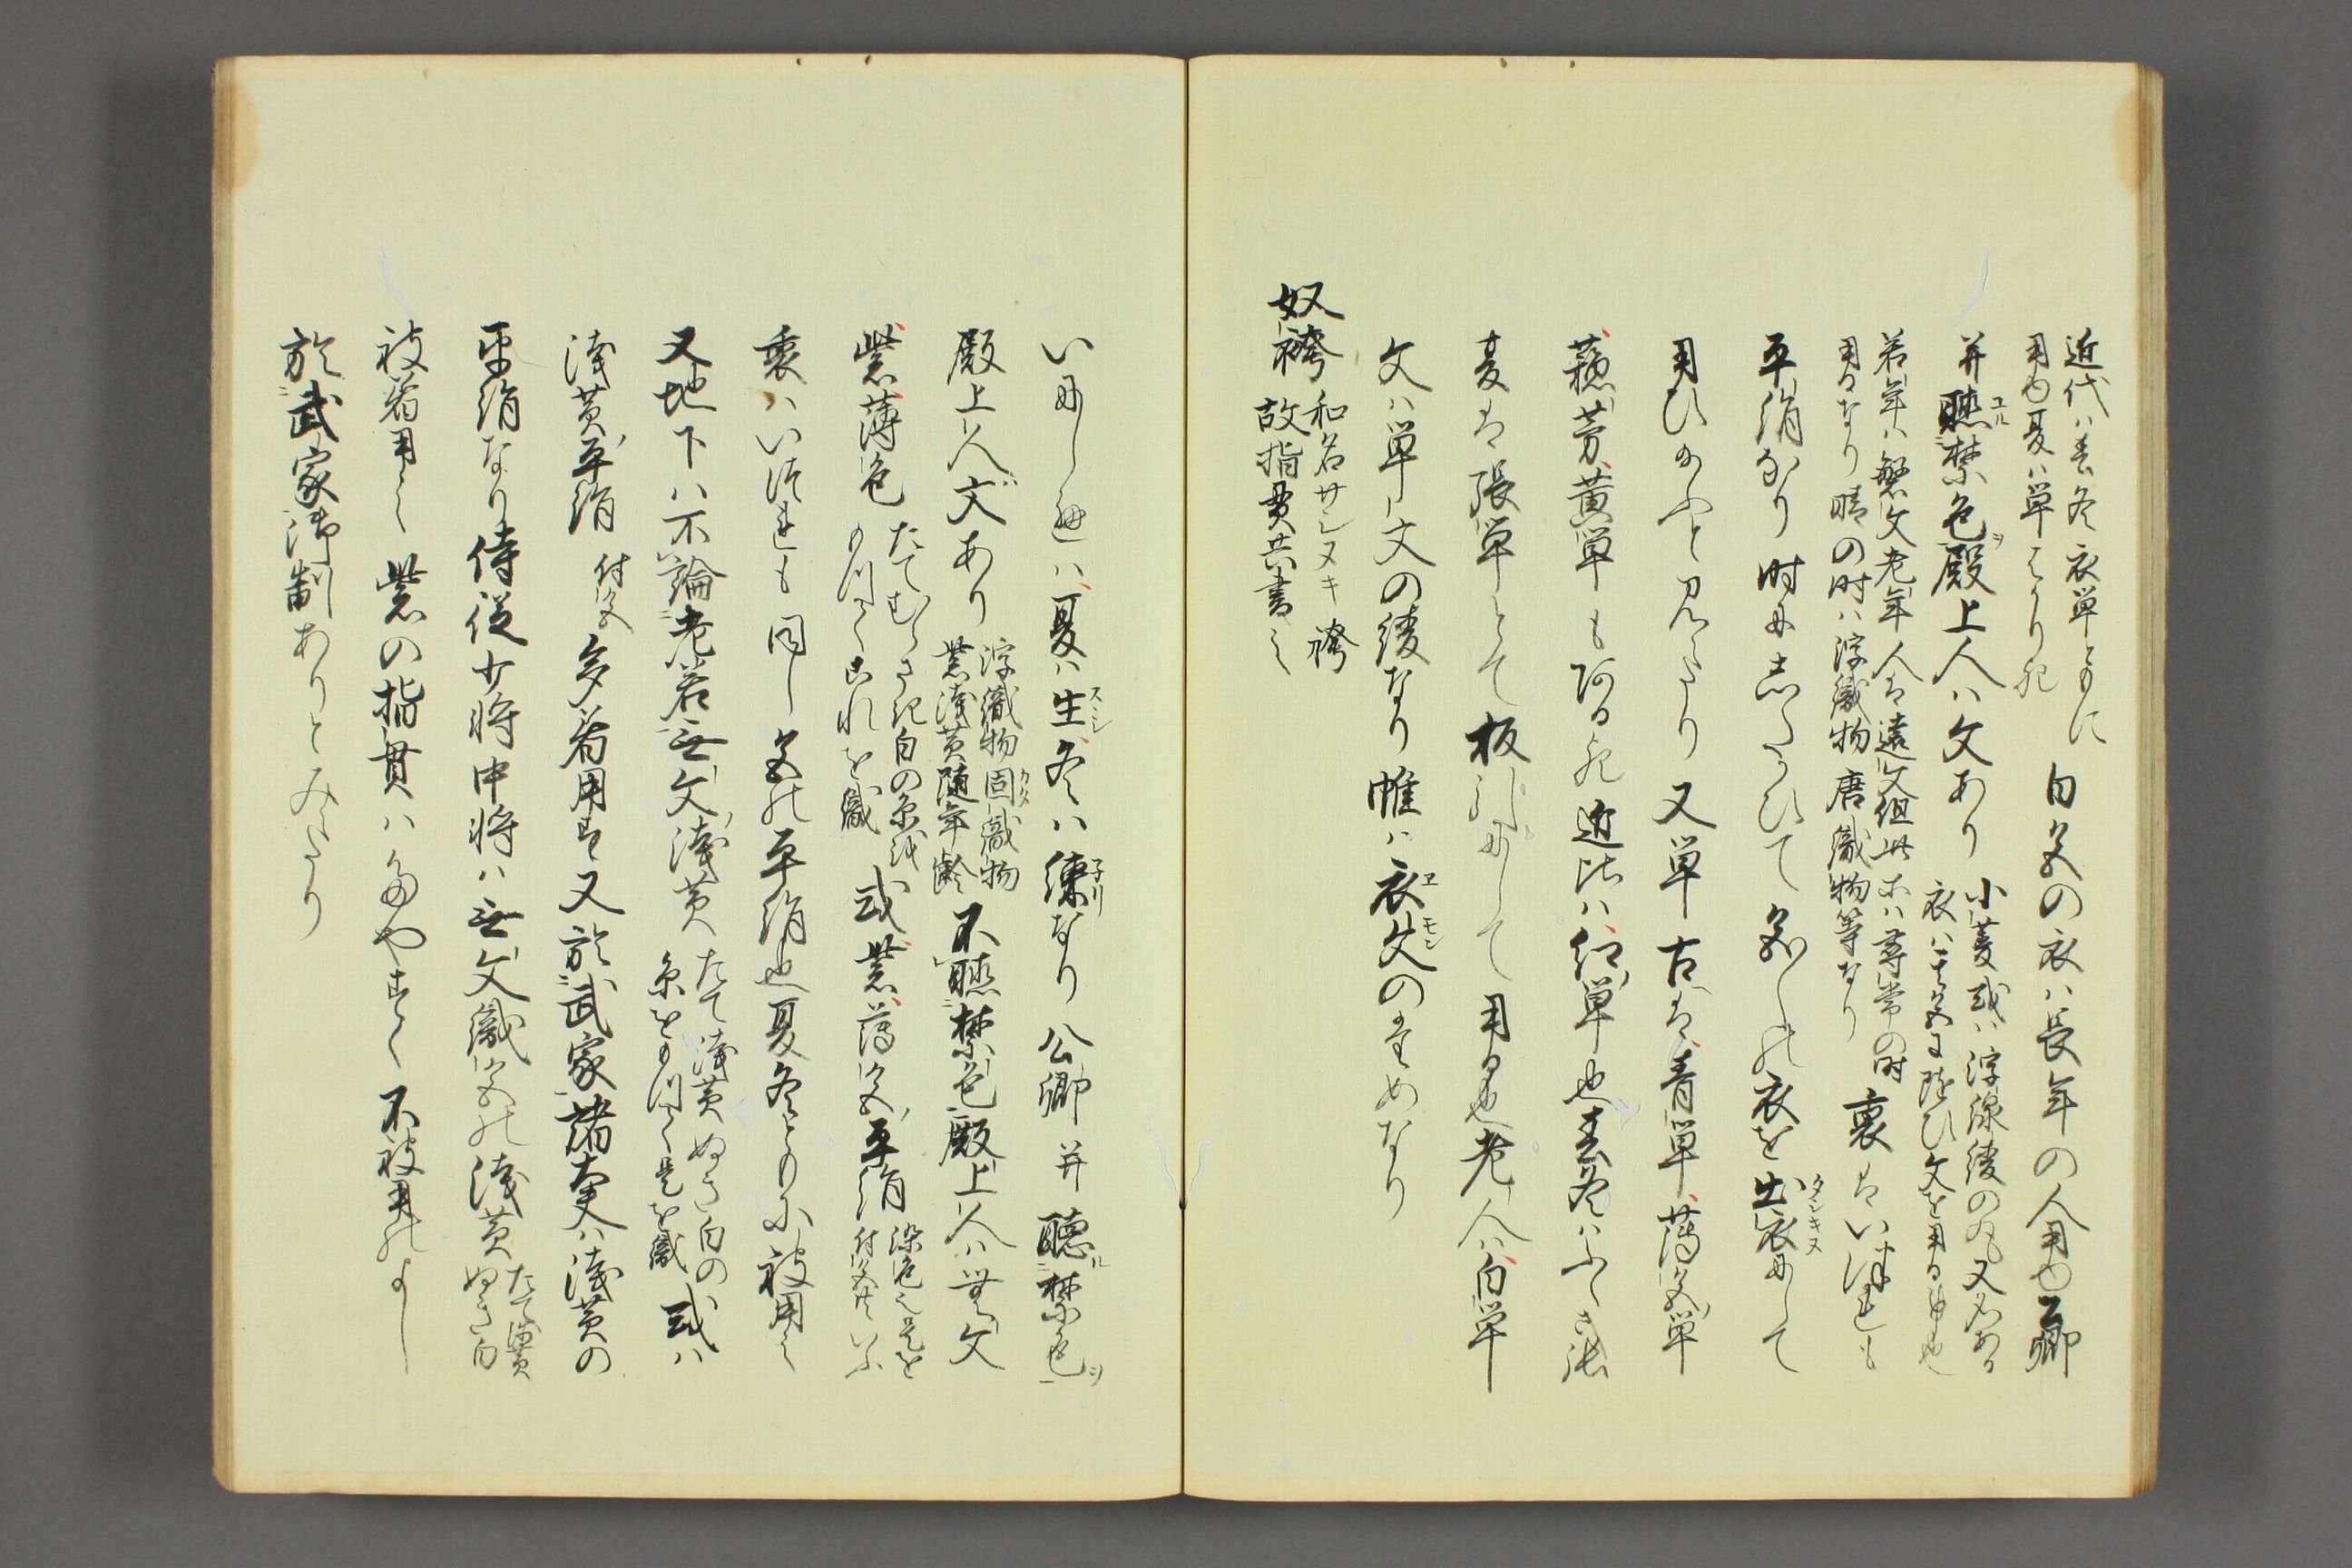 近代ハ春冬衣単ともに
用ゆ夏ハ単はかり
白色の衣ハ長年の人用ゆ公卿
并聴禁色殿上人ハ文あり
小菱或ハ浮線綾の丸又名ある
若年ハ繁文老年人は遠文但此ホハ尋常の時
用るなり晴の時ハ浮織物唐織物等なり
裏はいつれも
平絹なり時にしたかひて色々の衣を出衣にして
用ひかふと見へたり又単古は青単薄色単
蘓芳黄単も
近比ハ紅単也春冬ハふくさ張
夏は張単とて板引にして用る也老人ハ白単
文ハ単文の綾なり帷ハ衣文のためなり
奴袴
和名サシヌキノ袴
故指貫共書之
いにしへハ夏ハ生冬ハ練なり公卿并聴禁色
殿上人文あり
浮織物固織物
紫浅黄随年齢
不聴禁色殿上人ハ無文
紫薄色
たてむらさきぬき白の糸
にてこれを織
或紫薄色平絹
染色之是を
付色共いふ
裏ハいつれも同し色の平絹也夏冬ともに被用之
又地下ハ不論老若無文浅黄
たて浅黄ぬき白の
糸をもつて是を織
或ハ
浅黄平絹
付色
多着用す又於武家諸大夫ハ浅黄の
平絹なり侍従少将中将ハ無文織色の浅黄
たて浅黄
ぬき白
被着用之紫の指貫ハたやすく不被用のよし
於武家御制ありとみへたり